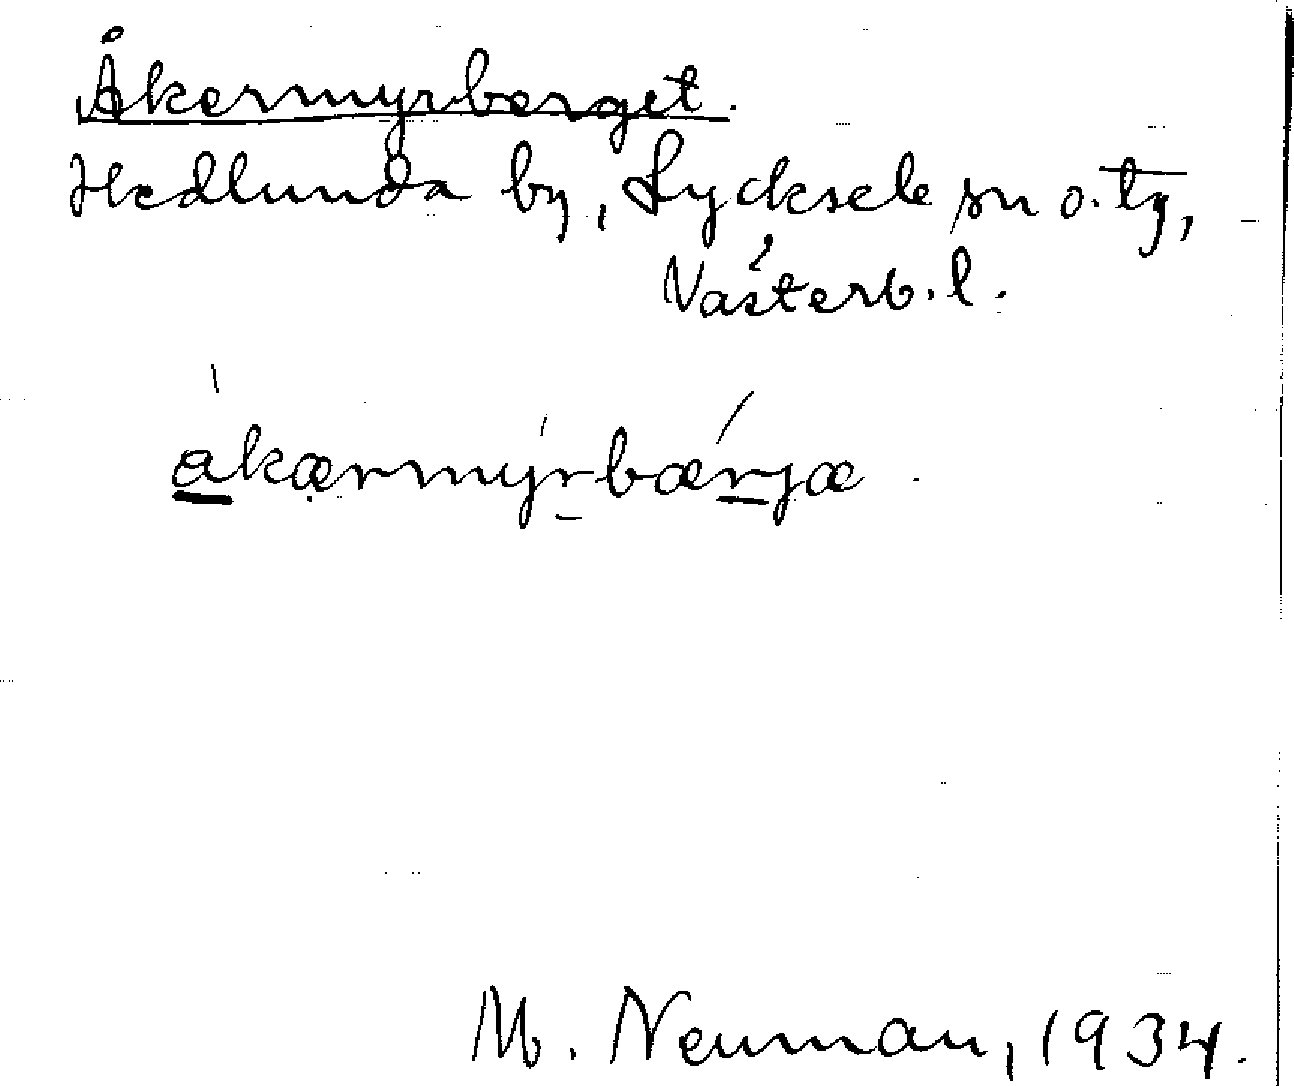 Åkermyrberget.
Hedlunda by, Lycksele sn o. tg,
Västerb. l.
akærmyrbærjæ.
M. Neuman, 1934.